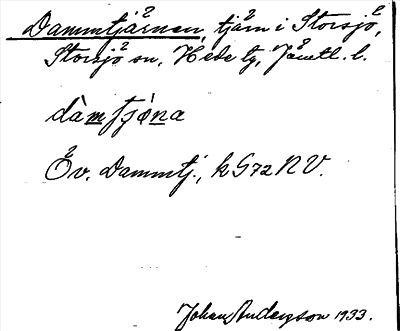 Dammtjärnen, tjärn i Storsjö,
Storsjö sn, Hede tg, Jämtl. l.
dàmtjǿna
Öv. Dammtj., k G72 NV.
Johan Anderson 1933.